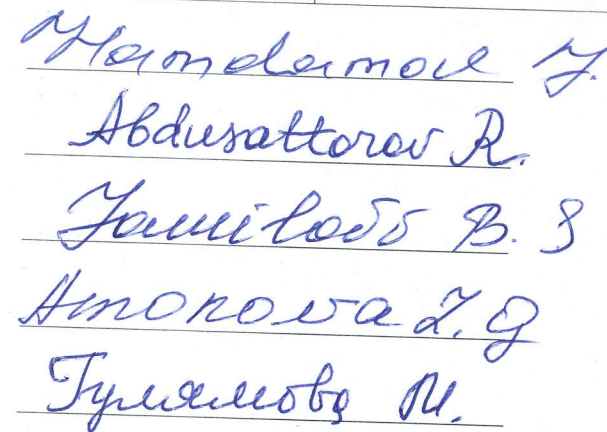 Hamdamov J.
Abdusattorov R.
Jamilov B. S
Amonova Z. G
Гулямова М.